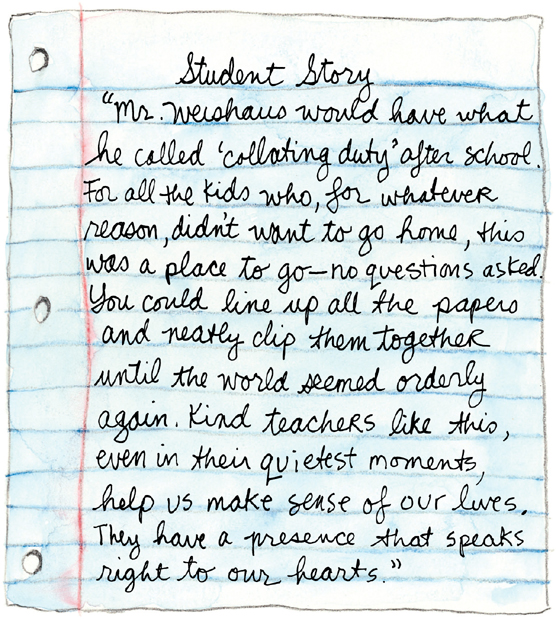 Student Story
"Mr. Weishaus would have what
he called 'collating duty' after school.
For all the kids who, for whatever
reason, didn't want to go home, this
was a place to go—no questions asked.
You could line up all the papers
and neatly clip them together
until the world seemed orderly
again. Kind teachers like this,
even in their quietest moments,
help us make sense of our lives.
They have a presence that speaks
right to our hearts."